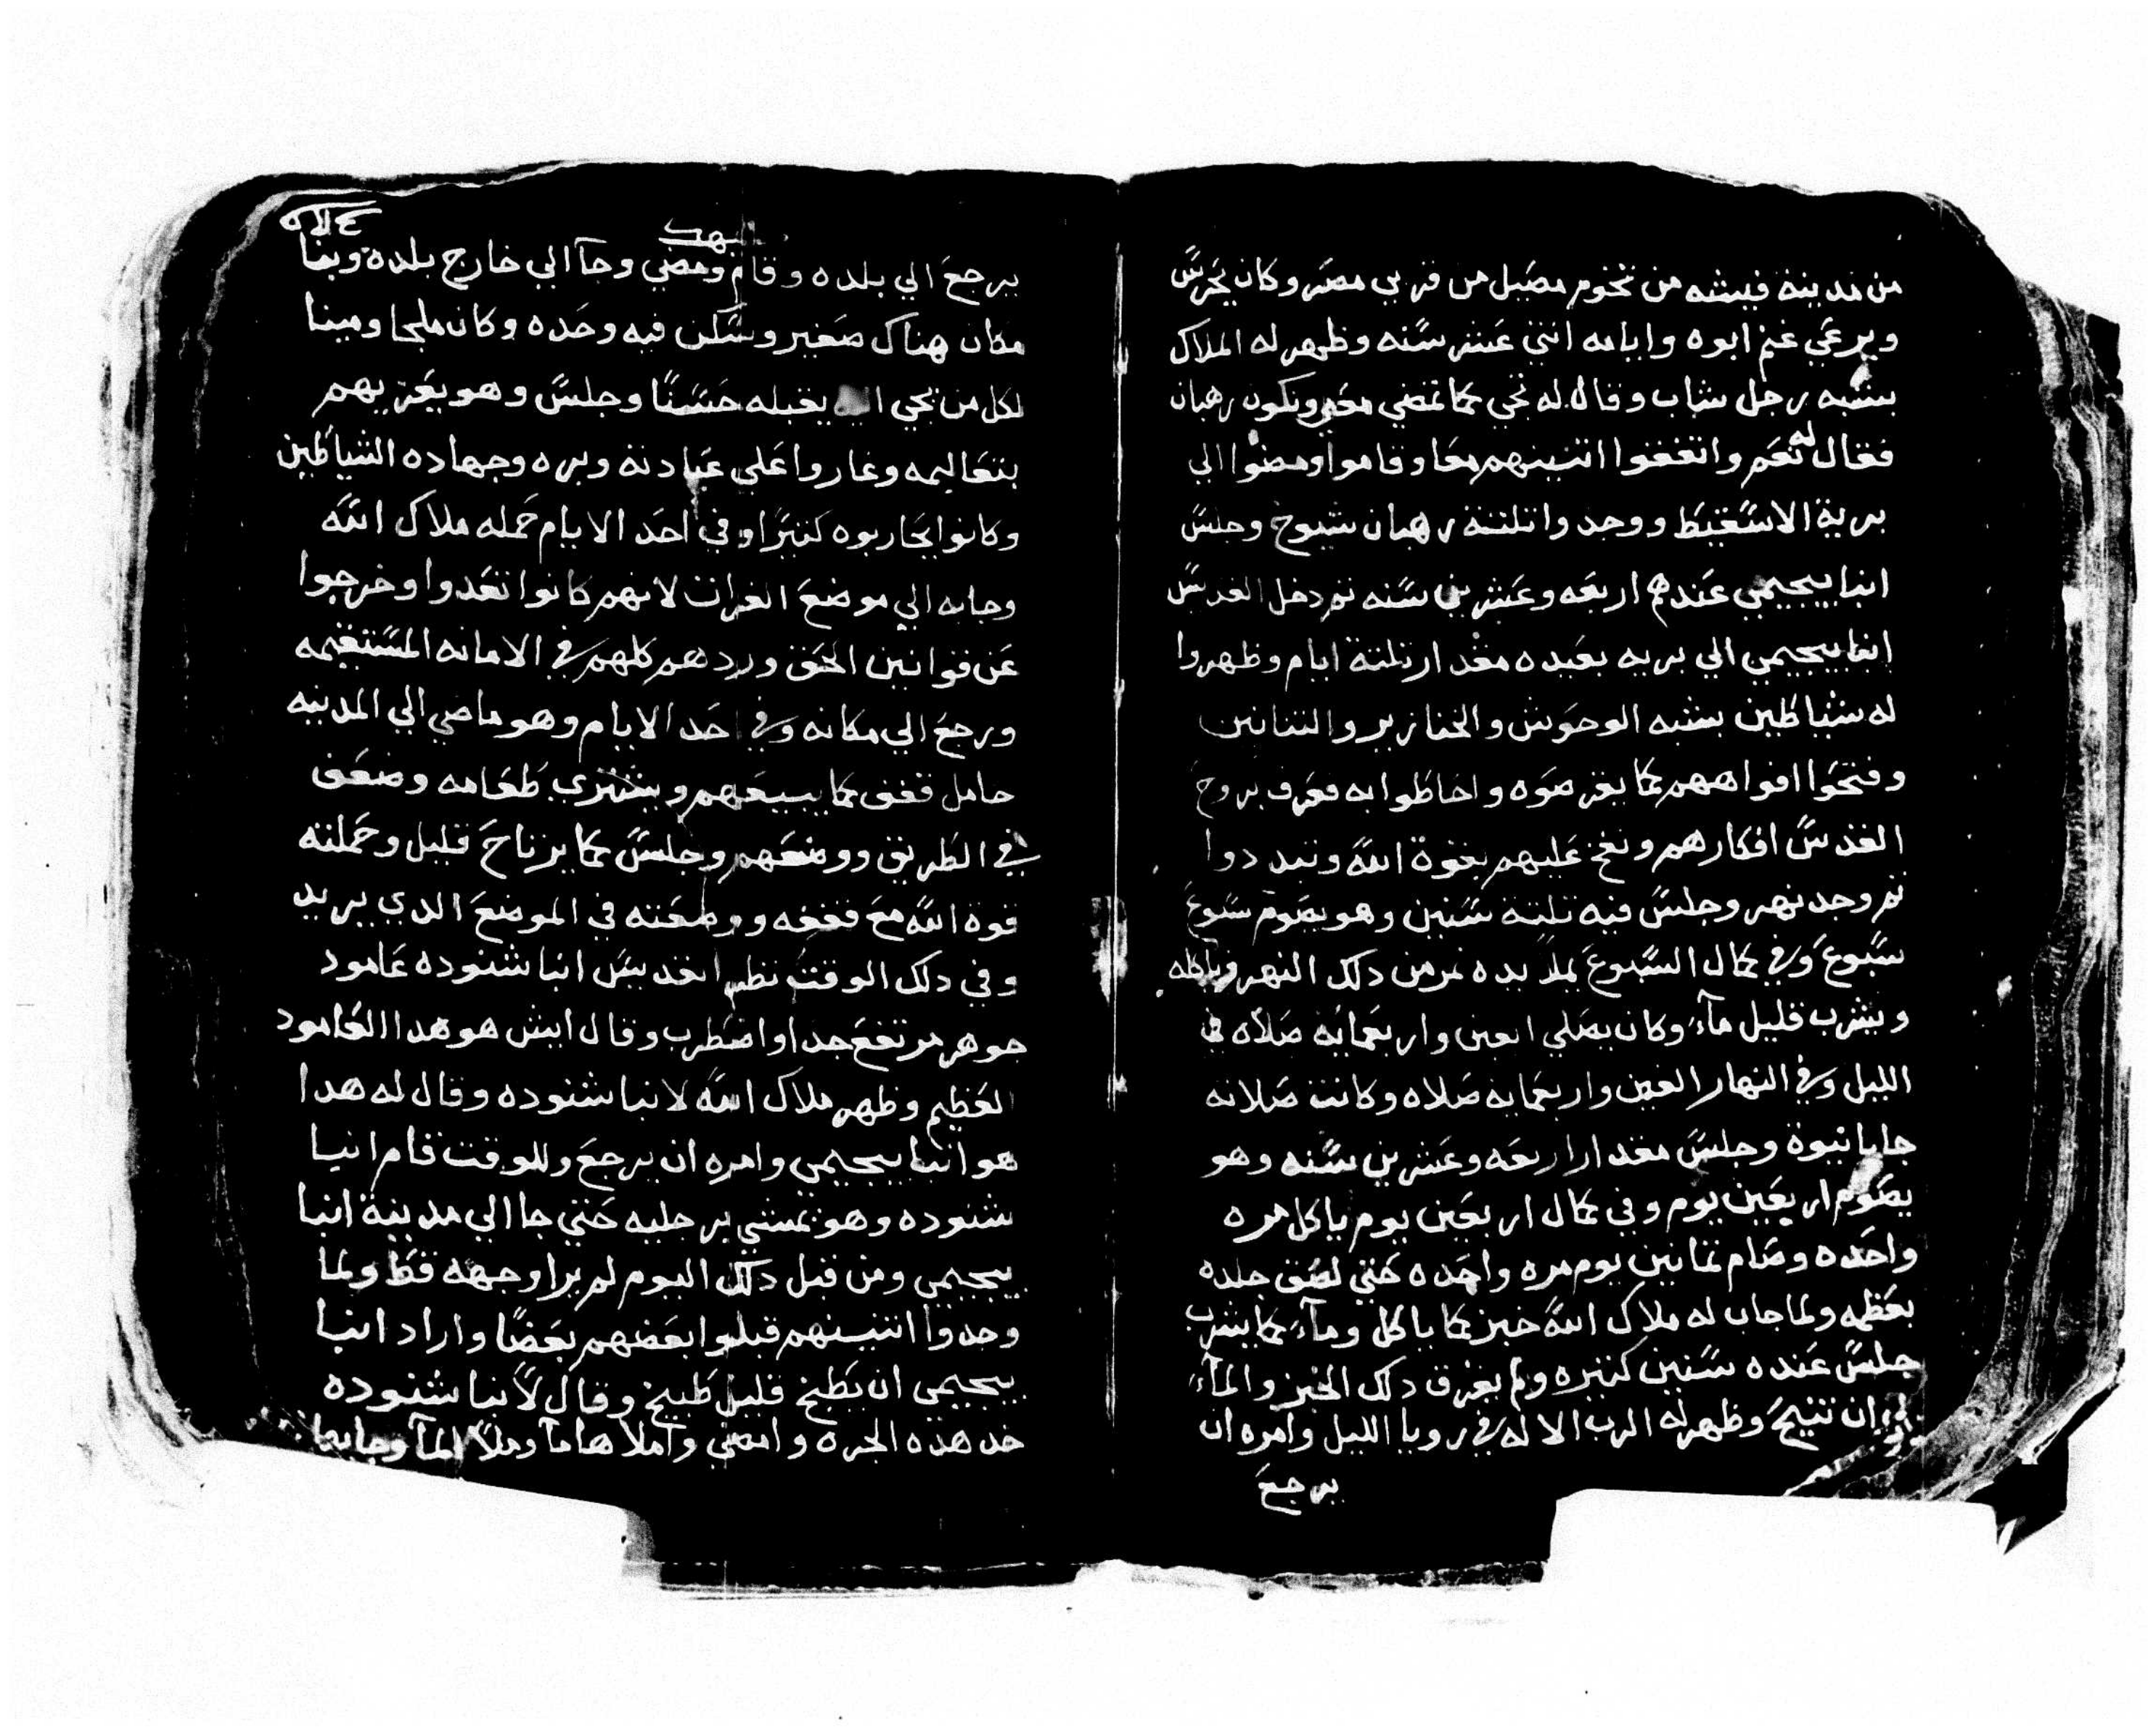 من مدينة فيشه من تخوم مصيل من قري مصر وكان يحرس
ويرعي غنم ابوه وايامه اتني عشر سنه وظهر له الملاك
بشبه رجل شاب وقال له تجي كما نمضي معا ونكون رهبان
فقال له نعم واتفقوا اتنينهم معا وقاموا ومضوا الي
برية الاسقيط ووجدوا تلتة رهبان شيوخ وجلس
انبا بيجيمي عندهم اربعه وعشرين سنه تم دخل القديس
انبا بيجيمي الي بريه بعيده مقدار تلتة ايام وظهروا
له شياطين بشبه الوحوش والخنازير والتنانين
وفتحوا افواههم كما يقرصوه واحاطوا به فعرف بروح
القدس افكارهم ونفخ عليهم بقوة الله وتبددوا
تم وجد نهر وجلس فيه تلتة سنين وهو يصوم سبوع
سبوع وفي كمال السبوع يملا يده تمر من دلك النهر وياكله
ويشرب قليل مآء وكان يصلي الفين واربعمايه صلاه في
الليل وفي النهار الفين واربعمايه صلاه وكانت صلاته
جابا نبوة وجلس مقدار اربعه وعشرين سنه وهو
يصوم اربعين يوم وفي كمال اربعين يوم ياكل مره
واحده وصام تمانين يوم مره واحده حتي لصق جلده
بعظمه ولما جاب له ملاك الله خبز كما ياكل ومآء كما يشرب
جلس عنده سنين كتيره ولم يفرق دلك الخبز والمآء
الي ان تنيح وظهر له الرب الاله في رويا الليل وامره ان
يرجع
يرجع الي بلده وقام ومضي وجآ الي خارج بلده وبنا
مكان هناك صغير وسكن فيه وحده وكان ملجا ومينا
لكل من يجي اليه يقبله حسنًا وجلس وهو يعزيهم
بتعاليمه وغاروا علي عبادته وبره وجهاده الشياطين
وكانوا يحاربوه كتيرًا وفي احد الايام حمله ملاك الله
وجابه الي موضع الفرات لانهم كانوا تعدوا وخرجوا
عن قوانين الحق وردهم كلهم في الامانه المستقيمه
ورجع الي مكانه وفي احد الايام وهو ماضي الي المدينه
حامل قفف كما يبيعهم ويشتري طعامه وضعف
في الطريق ووضعهم وجلس كما يرتاح قليل وحملته
قوة الله مع قففه ووضعته في الموضع الدي يريد
وفي دلك الوقت نظر القديس انبا شنوده عامود
جوهر مرتفع جدا واضطرب وقال ايش هو هدا العامود
العظيم وظهر ملاك الله لانبا شنوده وقال له هدا
هو انبا بيجيمي وامره ان يرجع وللوقت قام انبا
شنوده وهو يمشي برجليه حتي جا الي مدينة انبا
بيجيمي ومن قبل دلك اليوم لم يرا وجهه قط ولما
وجدوا اتنينهم قبلوا بعضهم بعضًا واراد انبا
بيجيمي ان يطبخ قليل طبيخ وقال لانبا شنوده
خد هده الجره وامضي واملاها مآ وملا المآ وجابها